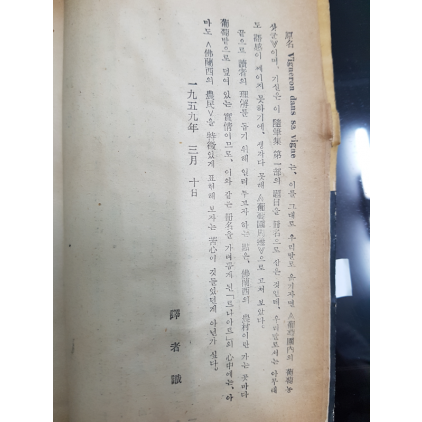 原名 Vigneron dans sa vigne 는, 이를 그대로 우리말로 옮기자면 ∧葡萄園內의 葡萄농
이며, 기실은 이 隨筆集 第一部의 題目을 冊名으로 삼은 것인데, 우리말로서는 아무래
도 語感이 째이지 못하기에, 생각다 못해 ∧葡萄園 로 고쳐 보았다.
끝으로 讀者의 理解를 돕기 위해 일러 두고자 하는 點은, 佛蘭西의 農村이란 가는 곳마다
葡萄밭으로 덮여 있는 實情이므로, 이와 같은 冊名을 가벼웁게 단 「르나아르」의 心中에는, 아
마도 ∧佛蘭西의 農民∨을 表현해 보자는 苦心이 깃들었던게 아닌가 싶다.
一九五九年 三月 十日
譯者 識